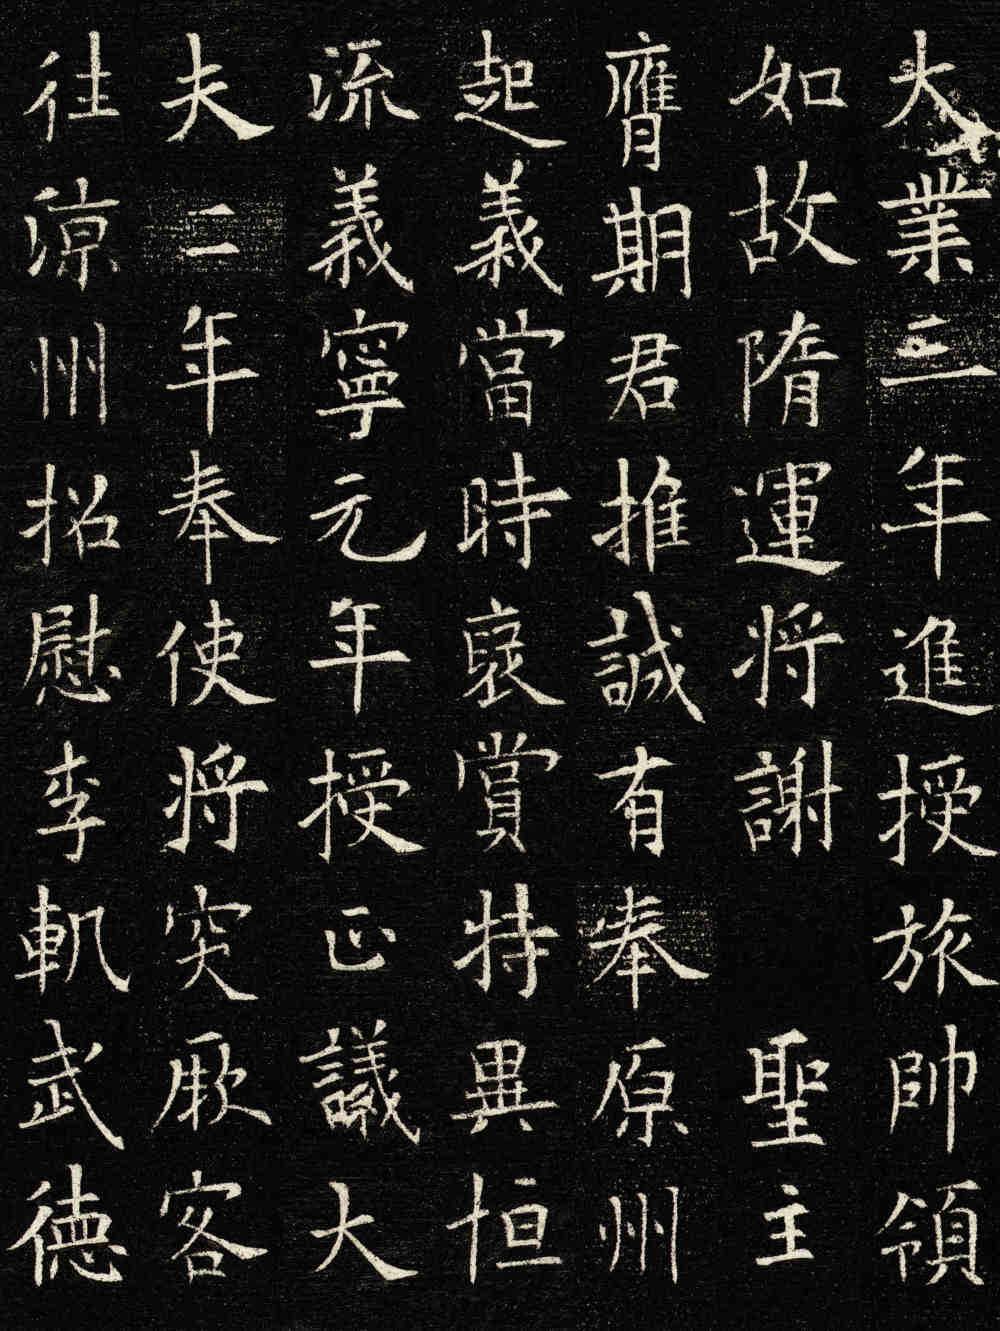 大業三年進授旅帥領
如故隋運将謝聖主
膺期君推誠有奉原州
起義當時裦賞特異恒
流義寧元年授正議大
夫二年奉使将突厥客
往涼州招慰李軌武德